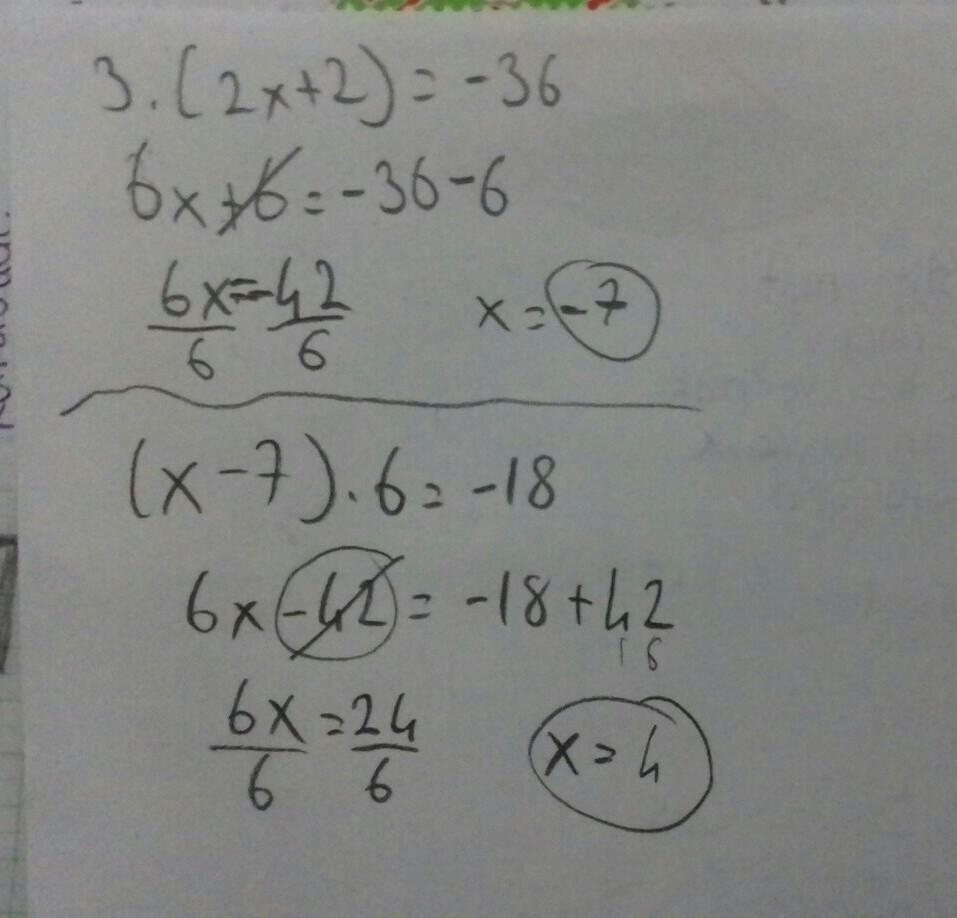 3.(2x+2)=-36
6x+6=-36-6
6x=-42
6 6
x=-7
(x-7).6=-18
6x-42=-18+42
6x=24
6 6
x=4